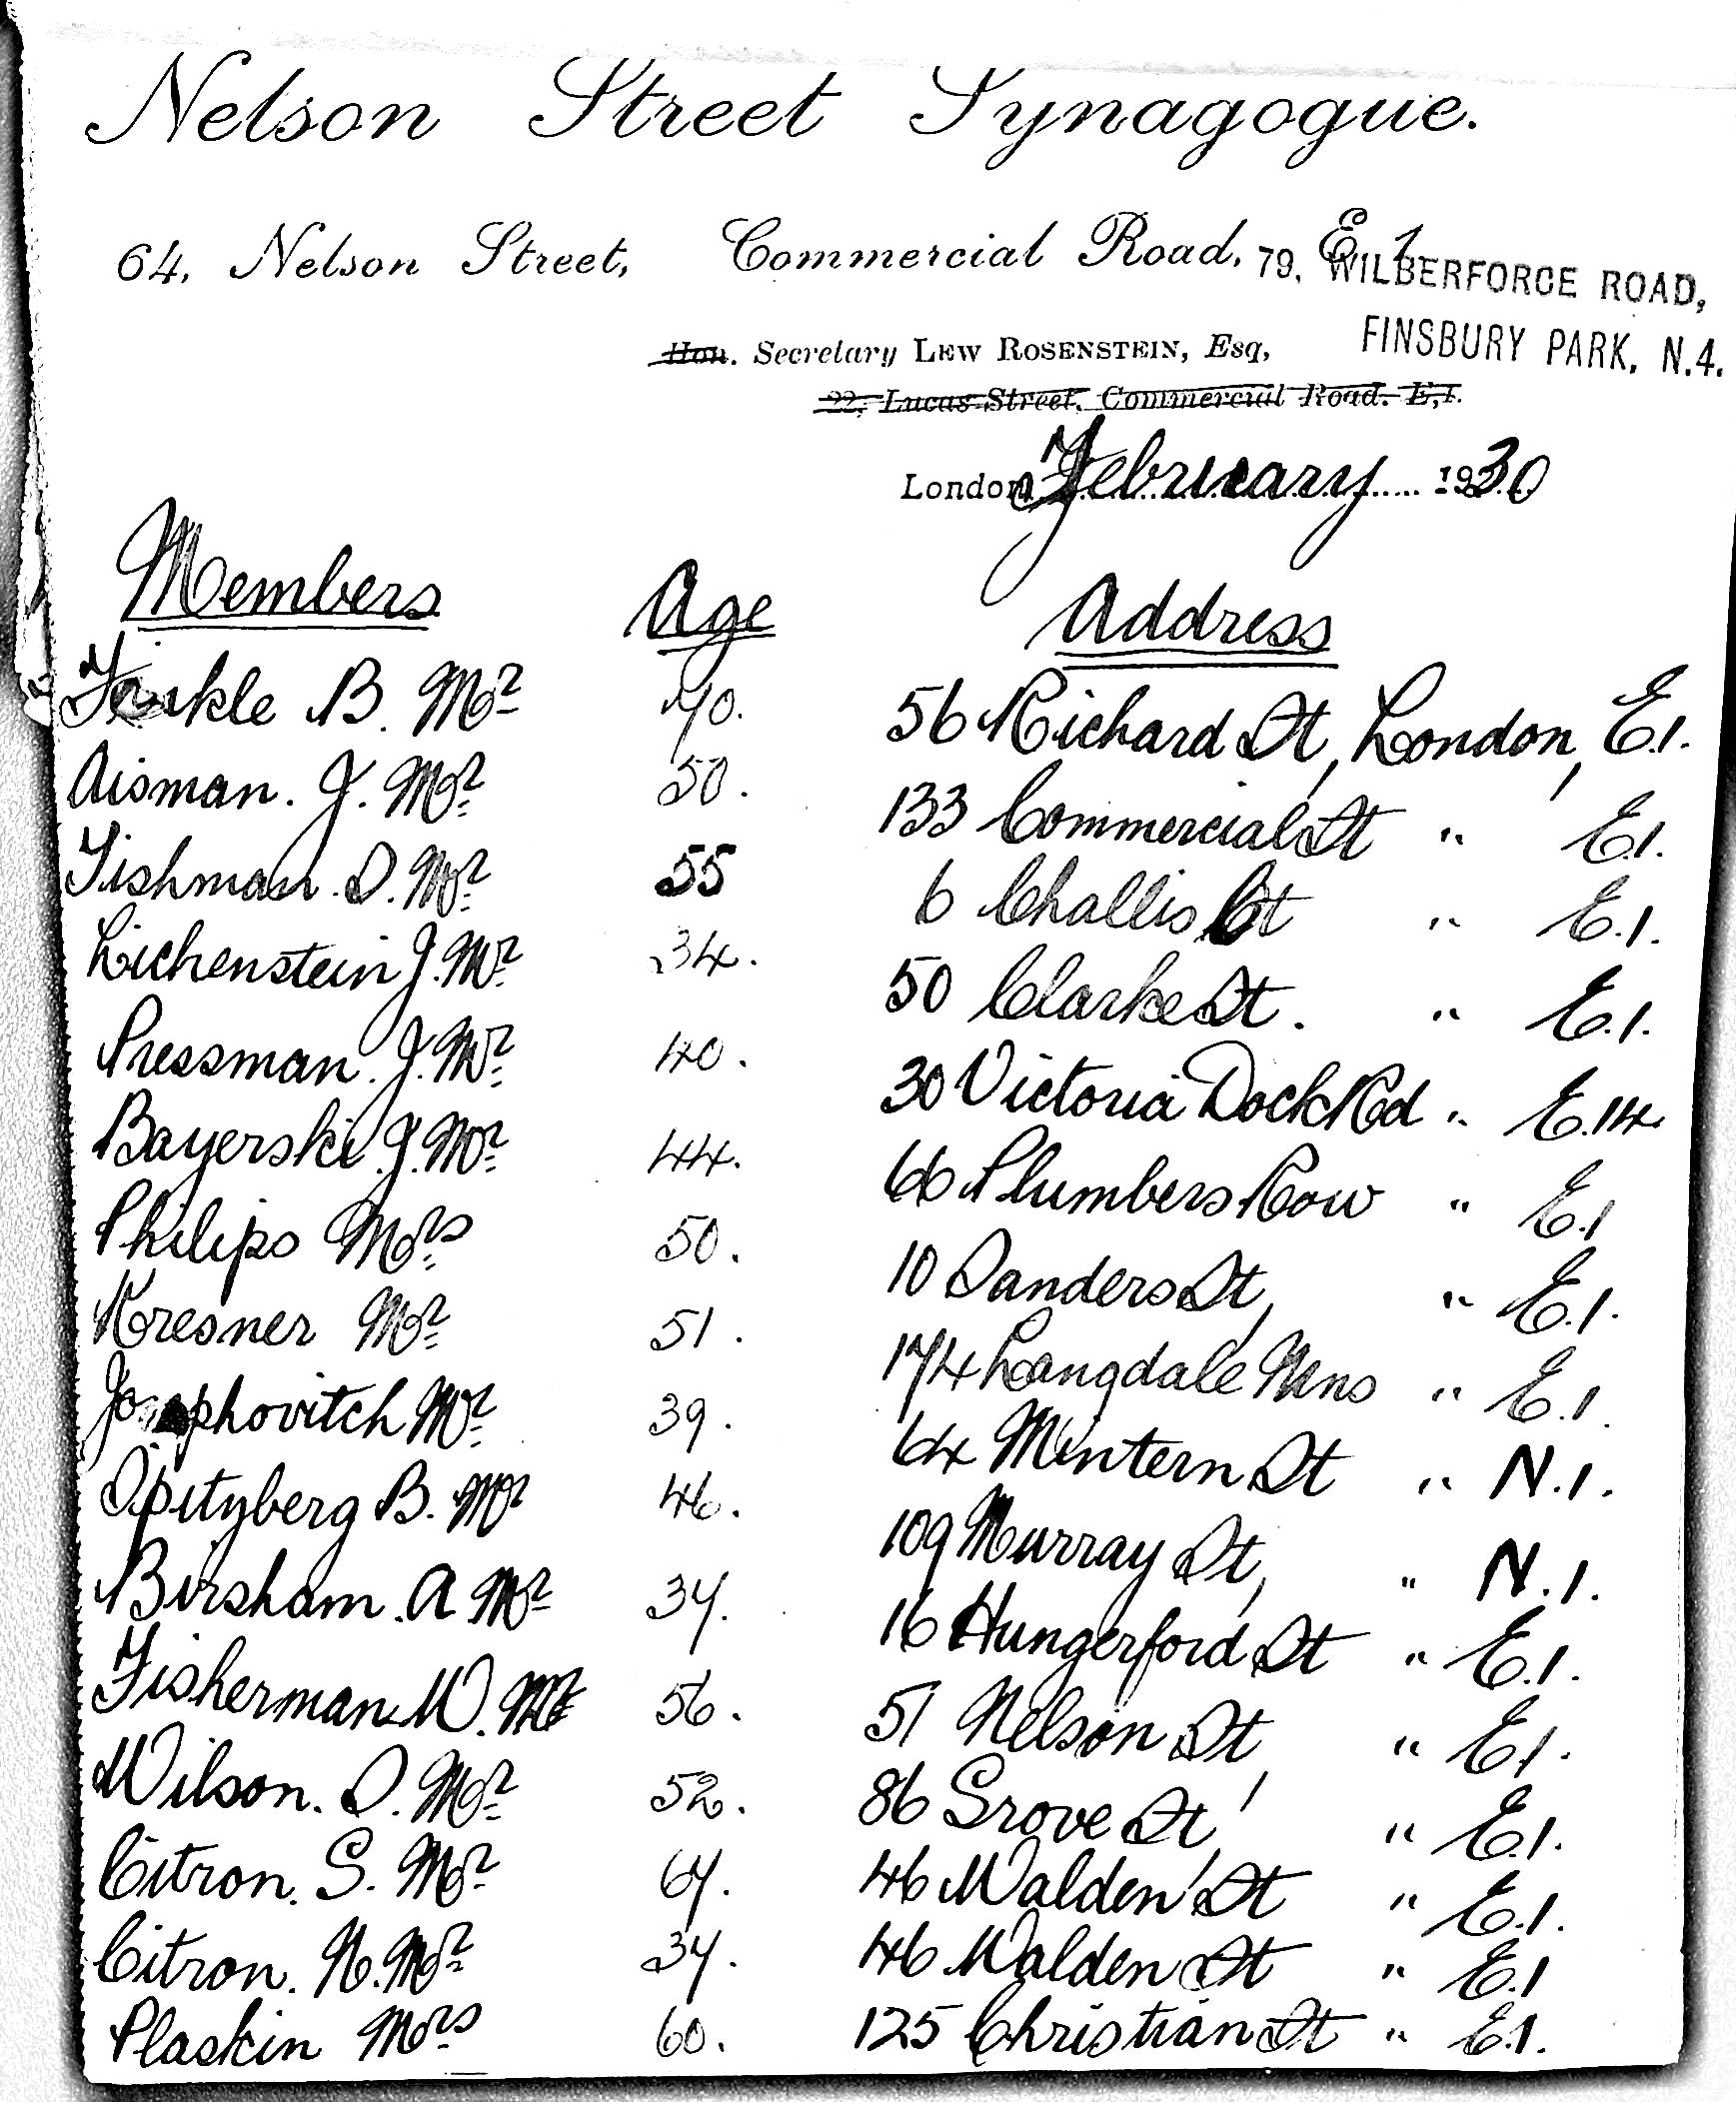 Nelson Street Synagogue.
64, Nelson Street, Commercial Road, E.1.
79, WILBERFORCE ROAD,
FINSBURY PARK, N.4.
Hon. Secretary LEW ROSENSTEIN, Esq,
22, Lucas Street, Commercial Road, E,1.
London, February 1930
Members Age Address
B. Mr 70. 56 Richard St, London, E.1.
Aisman. J. Mr 50. 133 Commercial St " E.1.
Fishman. D. Mr 55 6 Challis Ct " E.1.
Lichenstein J. Mr 34. 50 Clarke St. " E.1.
Pressman. J. Mr 40. 30 Victoria Dock Rd " E.14.
Bayerski. J. Mr 44. 66 Plumbers Row " E.1
Philips Mrs 50. 10 Sanders St, " E.1.
Kresner Mr 51. 174 Langdale Mns " E.1.
Josephovitch Mr 39. 64 Mintern St " N.1.
Spitzberg B. Mr 46. 109 Murray St, " N.1.
Birsham. A Mr 37. 16 Hungerford St " E.1.
Fisherman. W. Mr 56. 51 Nelson St, " E.1.
Wilson. D. Mr 52. 86 Grove St, " E.1.
Citron. S. Mr 67. 46 Walden St " E.1.
Citron. N. Mr 37. 46 Walden St " E.1
Plaskin Mrs 60. 125 Christian St " E.1.